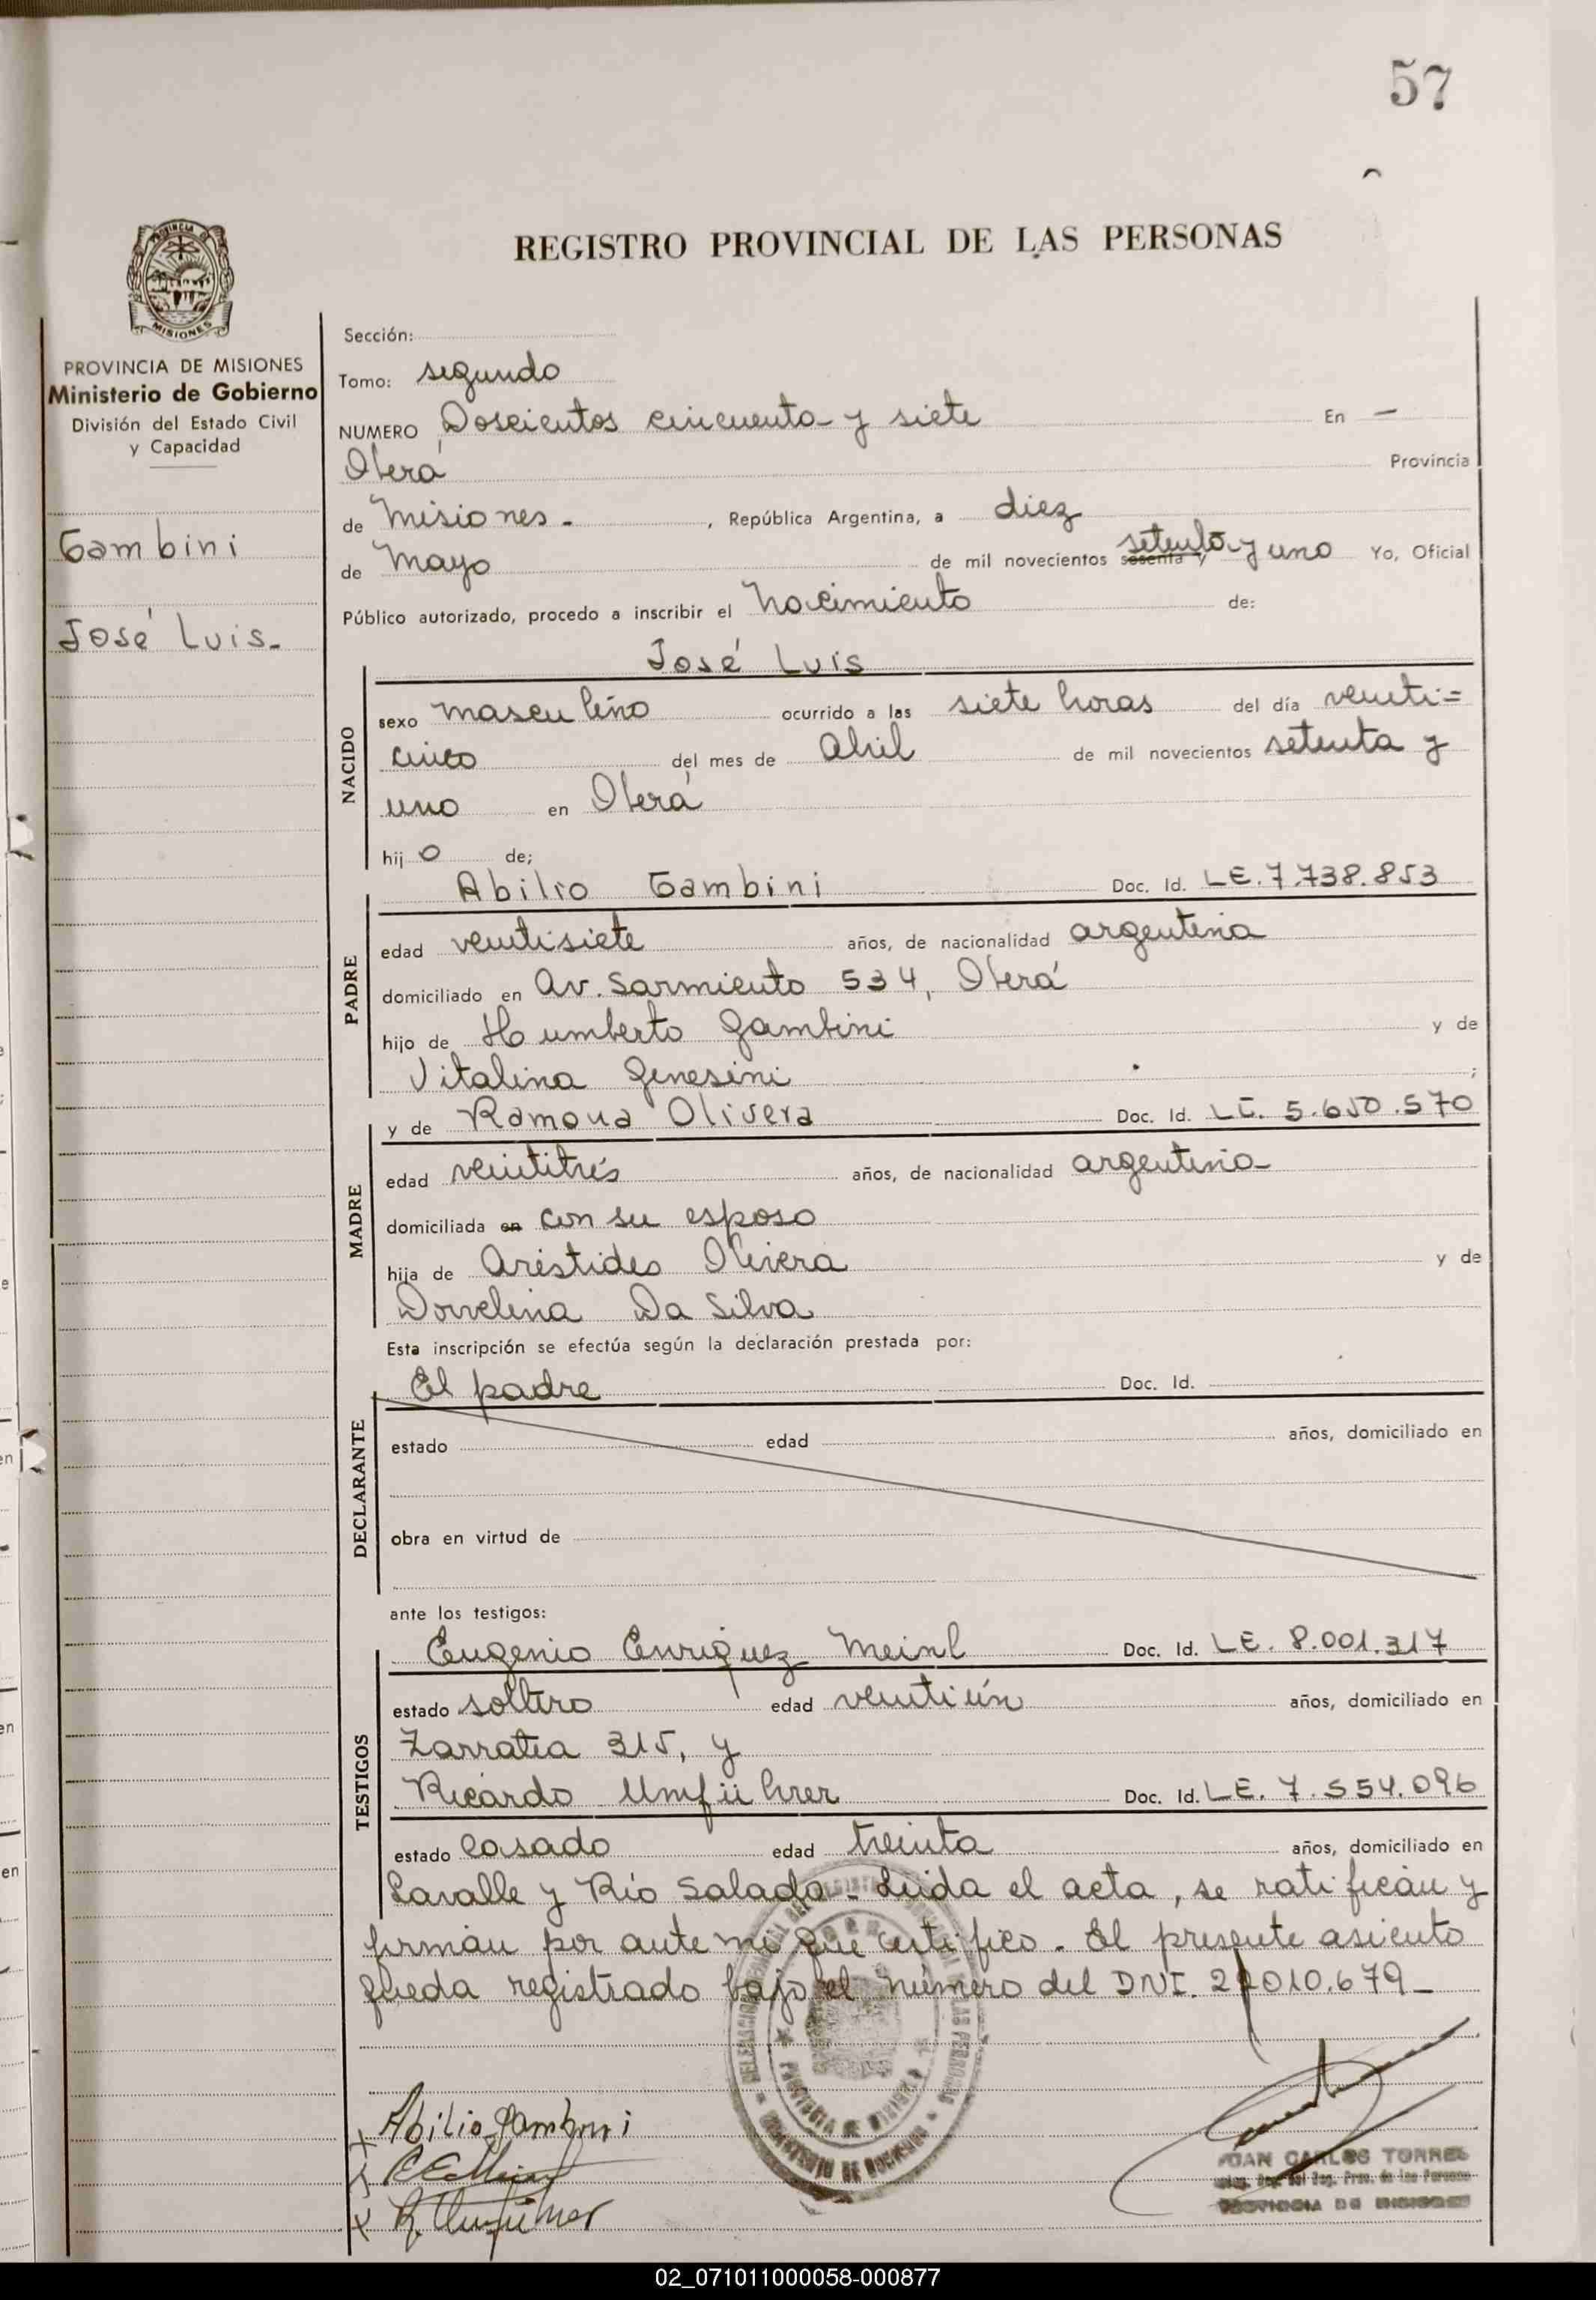 57
REGISTRO PROVINCIAL DE LAS PERSONAS
PROVINCIA DE MISIONES
Ministerio de Gobierno
División del Estado Civil
y Capacidad
Gambini
José Luis.
Sección:
Tomo: segundo
NUMERO Doscientos cincuenta y siete En —
Oberá Provincia
de Misiones. , República Argentina, a diez
de Mayo de mil novecientos sesenta y setenta y uno Yo, Oficial
Público autorizado, procedo a inscribir el Nacimiento de:
José Luis
NACIDO
sexo masculino ocurrido a las siete horas del día veinti=
cinco del mes de Abril de mil novecientos setenta y
uno en Oberá
hijo de;
Abilio Gambini Doc. Id. LE. 7.738.853
PADRE
edad veintisiete años, de nacionalidad argentina
domiciliado en Av. Sarmiento 534, Oberá
hijo de Humberto Gambini y de
Vitalina Genesini ;
y de Ramona Olivera Doc. Id. LC. 5.650.570
MADRE
edad veintitrés años, de nacionalidad argentina
domiciliada en con su esposo
hija de Arístides Olivera y de
Dorvelina Da Silva
Esta inscripción se efectúa según la declaración prestada por:
El padre Doc. Id.
DECLARANTE
estado edad años, domiciliado en
obra en virtud de
ante los testigos:
Eugenio Enriquez Meinl Doc. Id. LE. 8.001.317
TESTIGOS
estado soltero edad veintiún años, domiciliado en
Zarratea 315, y
Ricardo Umführer Doc. Id. LE. 7.554.096
estado casado edad treinta años, domiciliado en
Lavalle y Río Salado. Leida el acta, se ratifican y
firman por ante mí que certifico. El presente asiento
queda registrado bajo el número del DNI. 22.010.679
Abilio Gambini
JUAN CARLOS TORRES
PROVINCIA DE MISIONES
02_071011000058-000877